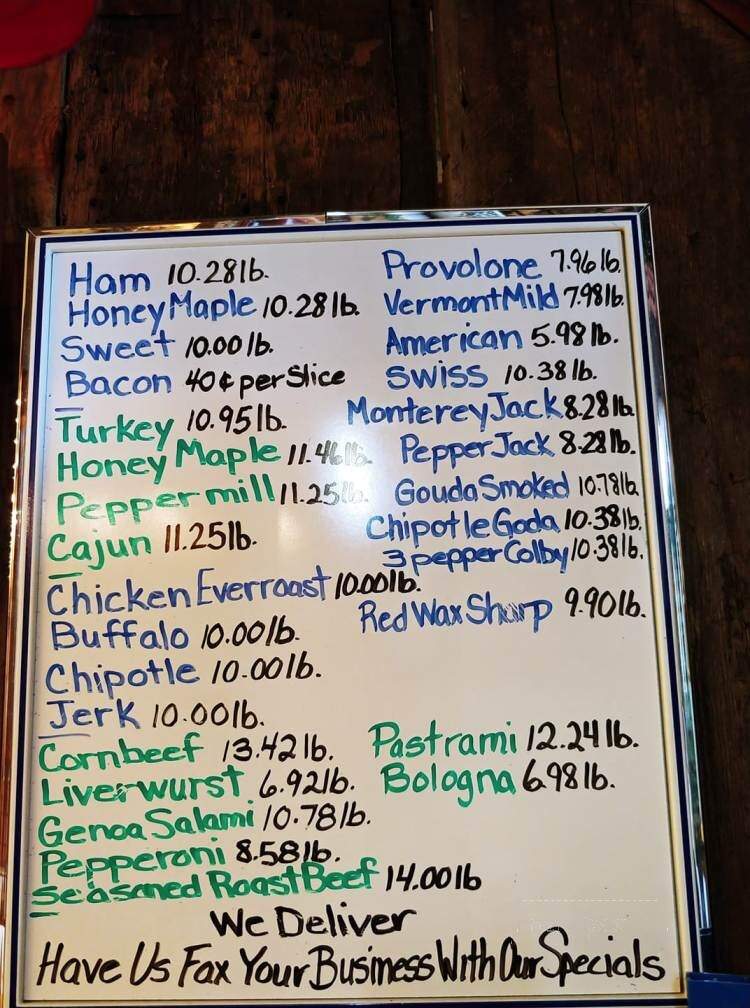 Ham 10.28 lb.
Honey Maple 10.28 lb.
Sweet 10.00 lb.
Bacon 40¢ per Slice
Turkey 10.95 lb.
Honey Maple 11.46 lb.
Pepper mill 11.25 lb.
Cajun 11.25 lb.
Chicken Everroast 10.00 lb.
Buffalo 10.00 lb.
Chipotle 10.00 lb.
Jerk 10.00 lb.
Cornbeef 13.42 lb.
Liverwurst 6.92 lb.
Genoa Salami 10.78 lb.
Pepperoni 8.58 lb.
Seasoned Roast Beef 14.00 lb
Provolone 7.96 lb.
Vermont Mild 7.98 lb.
American 5.98 lb.
Swiss 10.38 lb.
Monterey Jack 8.28 lb.
Pepper Jack 8.28 lb.
Gouda Smoked 10.78 lb
Chipotle Goda 10.38 lb.
3 pepper Colby 10.38 lb.
Red Wax Sharp 9.90 lb.
Pastrami 12.24 lb.
Bologna 6.98 lb.
We Deliver
Have Us Fax Your Business With Our Specials